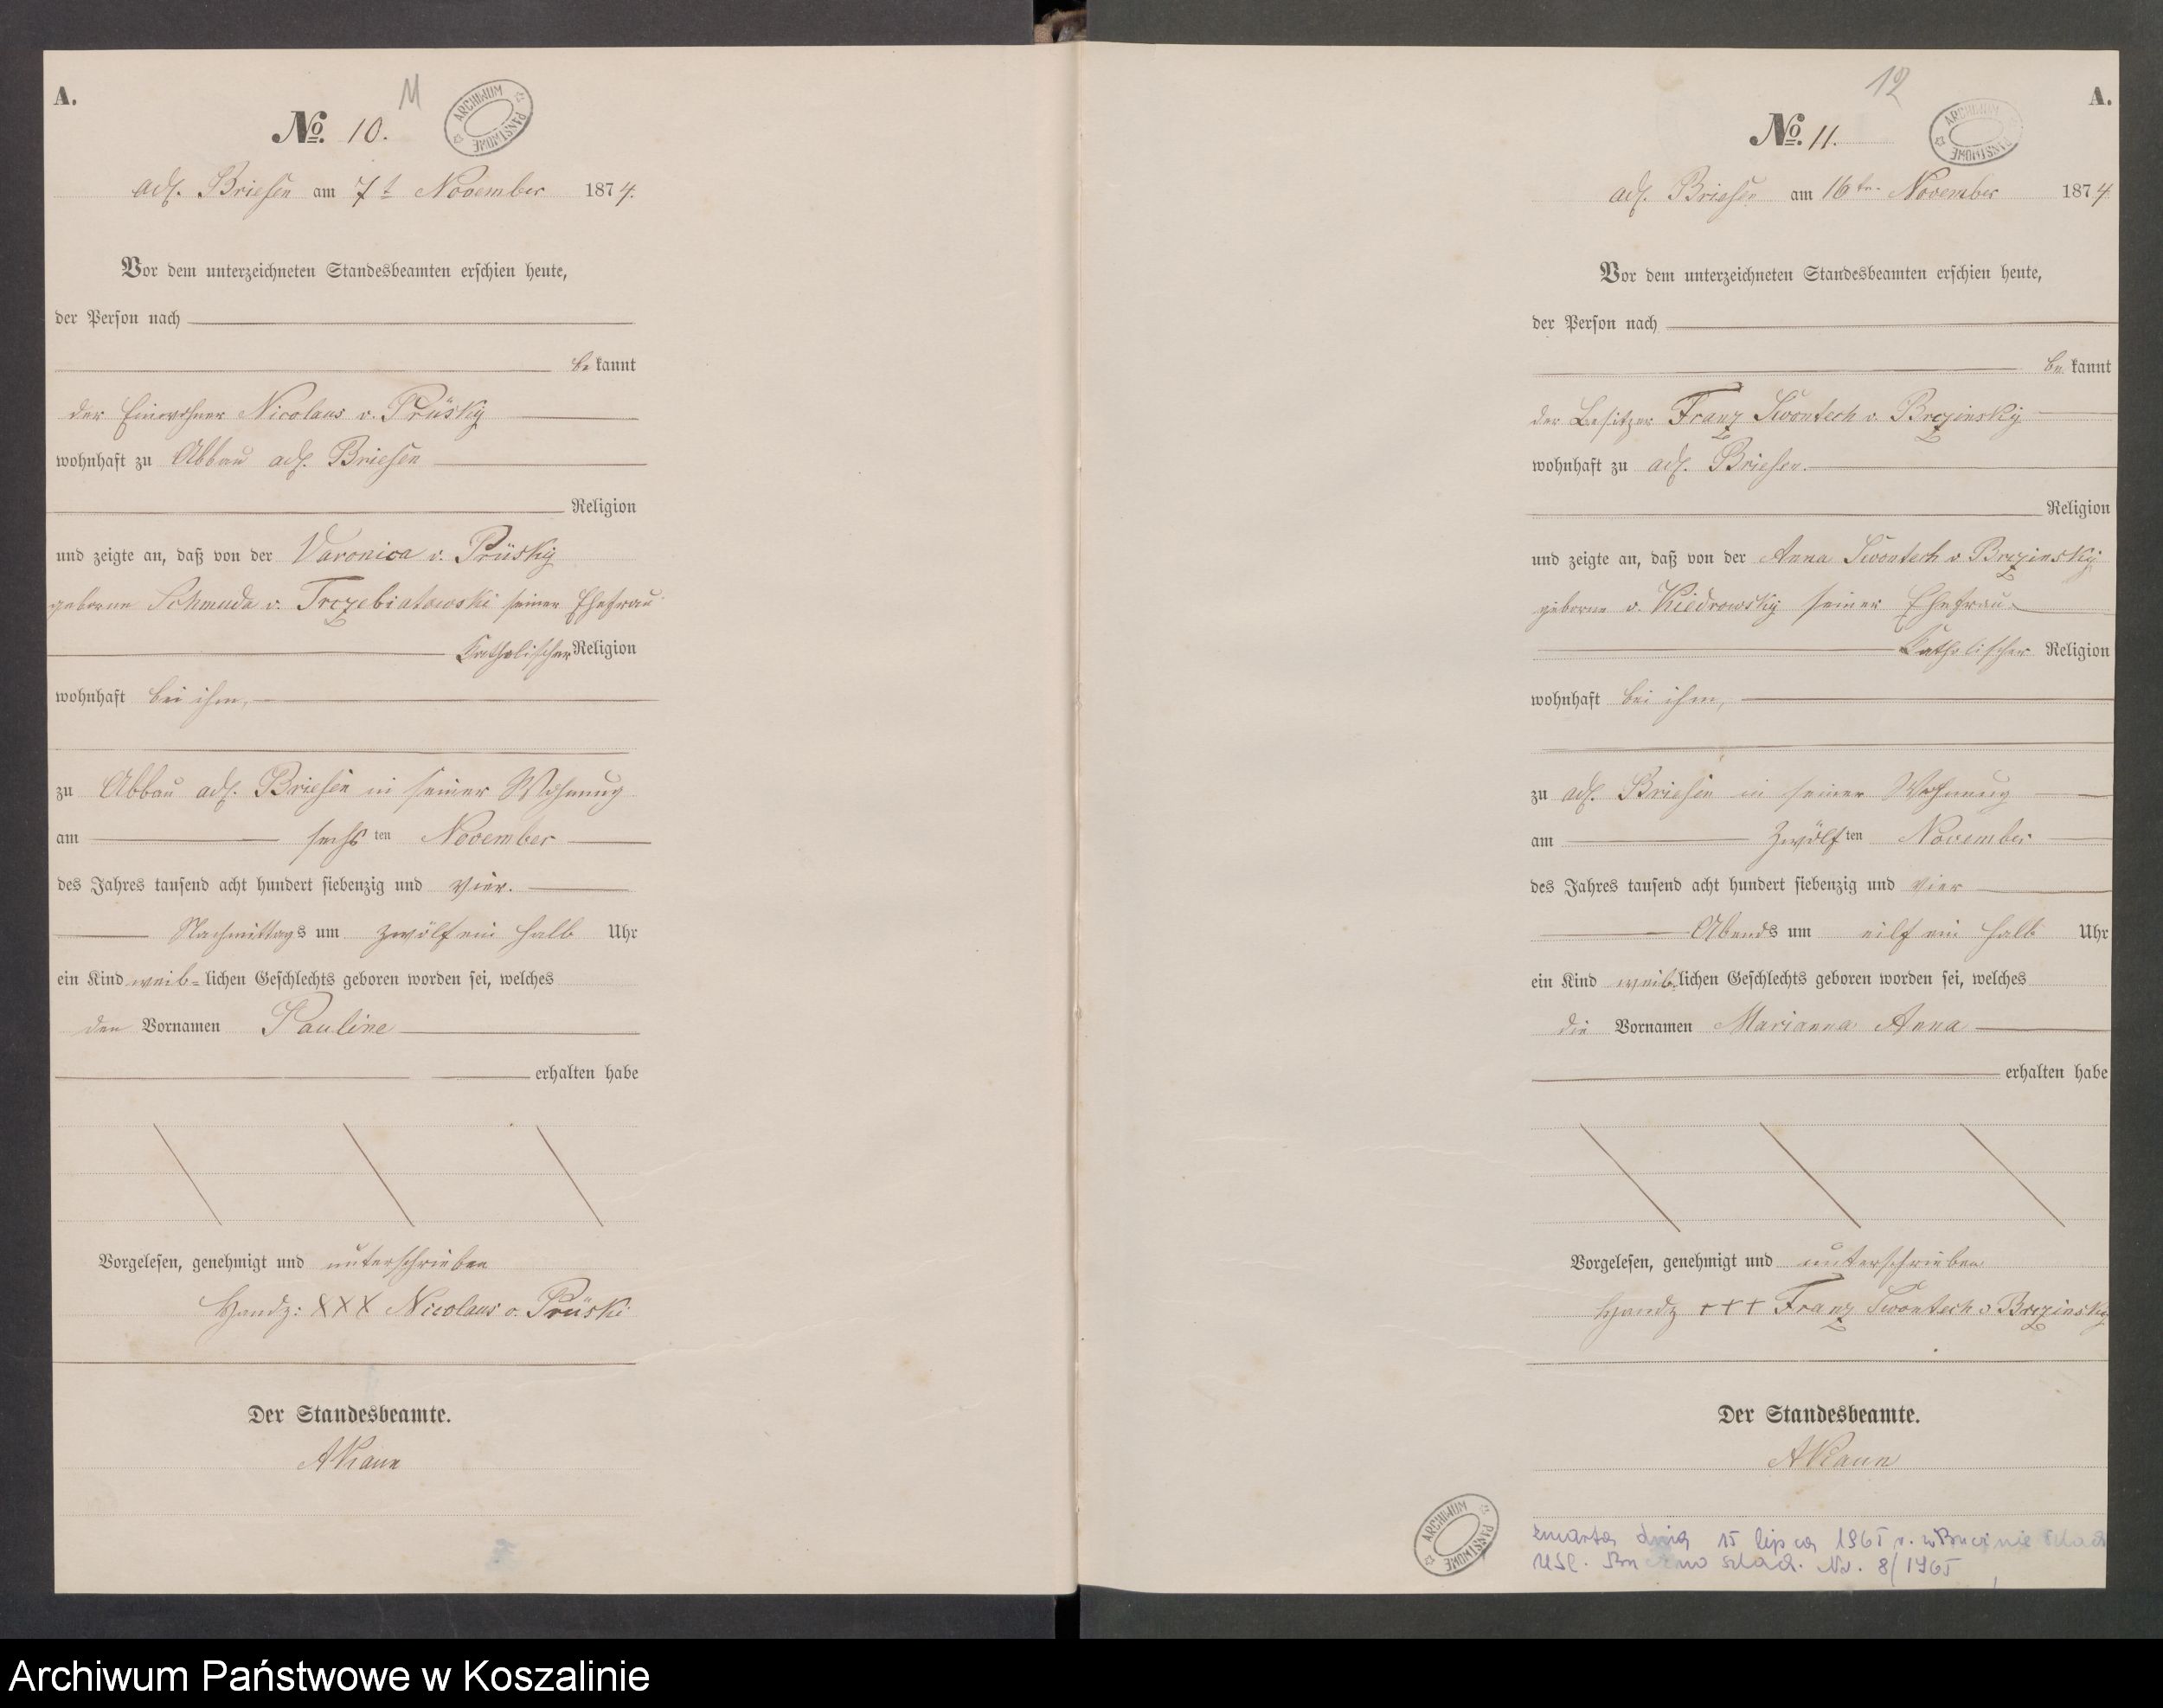 A.
11
No. 10.
ARCHIWUM PAŃSTWOWE
adl. Briesen am 7t November 1874.
Vor dem unterzeichneten Standesbeamten erschien heute,
der Person nach
bekannt
der Einwohner Nicolaus v. Prüsky
wohnhaft zu Abbau adl. Briesen
Religion
und zeigte an, daß von der Varonica v. Prüsky
geborne Schmuda v. Trczebiatowski seiner Ehefrau
Katholischer Religion
wohnhaft bei ihm,
zu Abbau adl. Briesen in seiner Wohnung
am sechsten November
des Jahres tausend acht hundert siebenzig und vier.
Nachmittags um zwölf ein halb Uhr
ein Kind weib-lichen Geschlechts geboren worden sei, welches
den Vornamen Pauline
erhalten habe
Vorgelesen, genehmigt und unterschrieben
Handz: XXX Nicolaus v. Prüski
Der Standesbeamte.
AKaun
12
A.
No. 11.
ARCHIWUM PAŃSTWOWE
adl. Briesen am 16ten November 1874
Vor dem unterzeichneten Standesbeamten erschien heute,
der Person nach
bekannt
der Besitzer Franz Swontech v. Brczinsky
wohnhaft zu adl. Briesen.
Religion
und zeigte an, daß von der Anna Swontech v Brczinsky
geborne v. Kiedrowsky seiner Ehefrau
Katholischer Religion
wohnhaft bei ihm,
zu adl. Briesen in seiner Wohnung
am Zwölften November
des Jahres tausend acht hundert siebenzig und vier
Abends um eilf ein halb Uhr
ein Kind weiblichen Geschlechts geboren worden sei, welches
die Vornamen Marianna Anna
erhalten habe
Vorgelesen, genehmigt und unterschrieben
Handz +++ Franz Swontech v. Brczinsky
Der Standesbeamte.
AKaun
ARCHIWUM PAŃSTWOWE
zmarła dnia 15 lipca 1965 r. w
USC. szlach. Nr. 8/1965
Archiwum Państwowe w Koszalinie